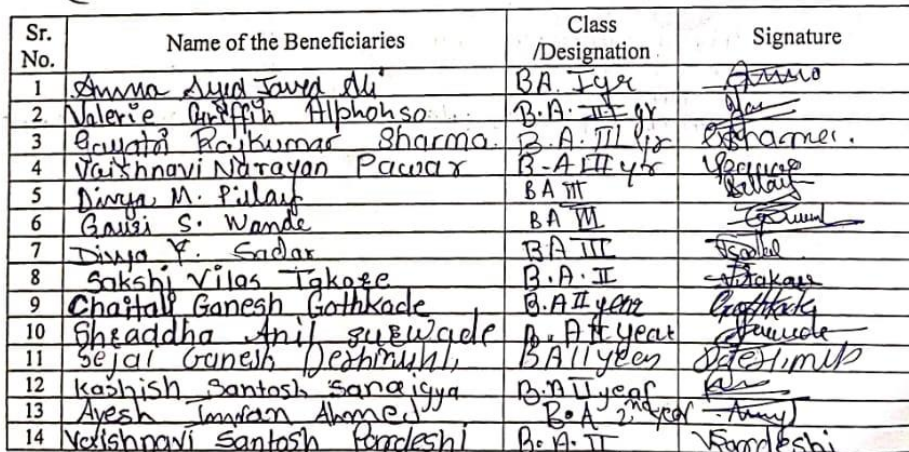 Sr. No. Name of the Beneficiaries Class /Designation Signature
1 Syed Javed Ali BA. I yr
2 Valerie Griffin Alphonso B.A. III yr
3 Gayatri Rajkumar Sharma B.A. III yr Sharma.
4 Vaishnavi Narayan Pawar B-A III yr
5 Divya M. Pillay BA III Pillay
6 Gauri S. Wande BA III
7 Divya Y. Sadar BA III
8 Sakshi Vilas Takote B.A. II
9 Chaitali Ganesh Gothkade B.A II year Gothkade
10 Shraddha Anil B. A II year
11 Sejal Ganesh Deshmukh BA II year Deshmukh
12 Kashish Santosh B.A II year
13 Ayesh Imran Ahmed B.A 2nd year
14 Vaishnavi Santosh Pardeshi B.A. II VPardeshi